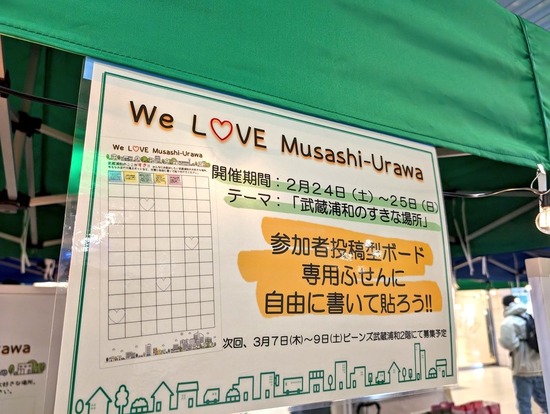 We L♡VE Musashi-Urawa
We L♡VE Musashi-Urawa
開催期間:2月24日(土)~25日(日)
テーマ:「武蔵浦和のすきな場所」
参加者投稿型ボード
専用ふせんに
自由に書いて貼ろう!!
次回、3月7日(木)~9日(土)ビーンズ武蔵浦和2階にて募集予定